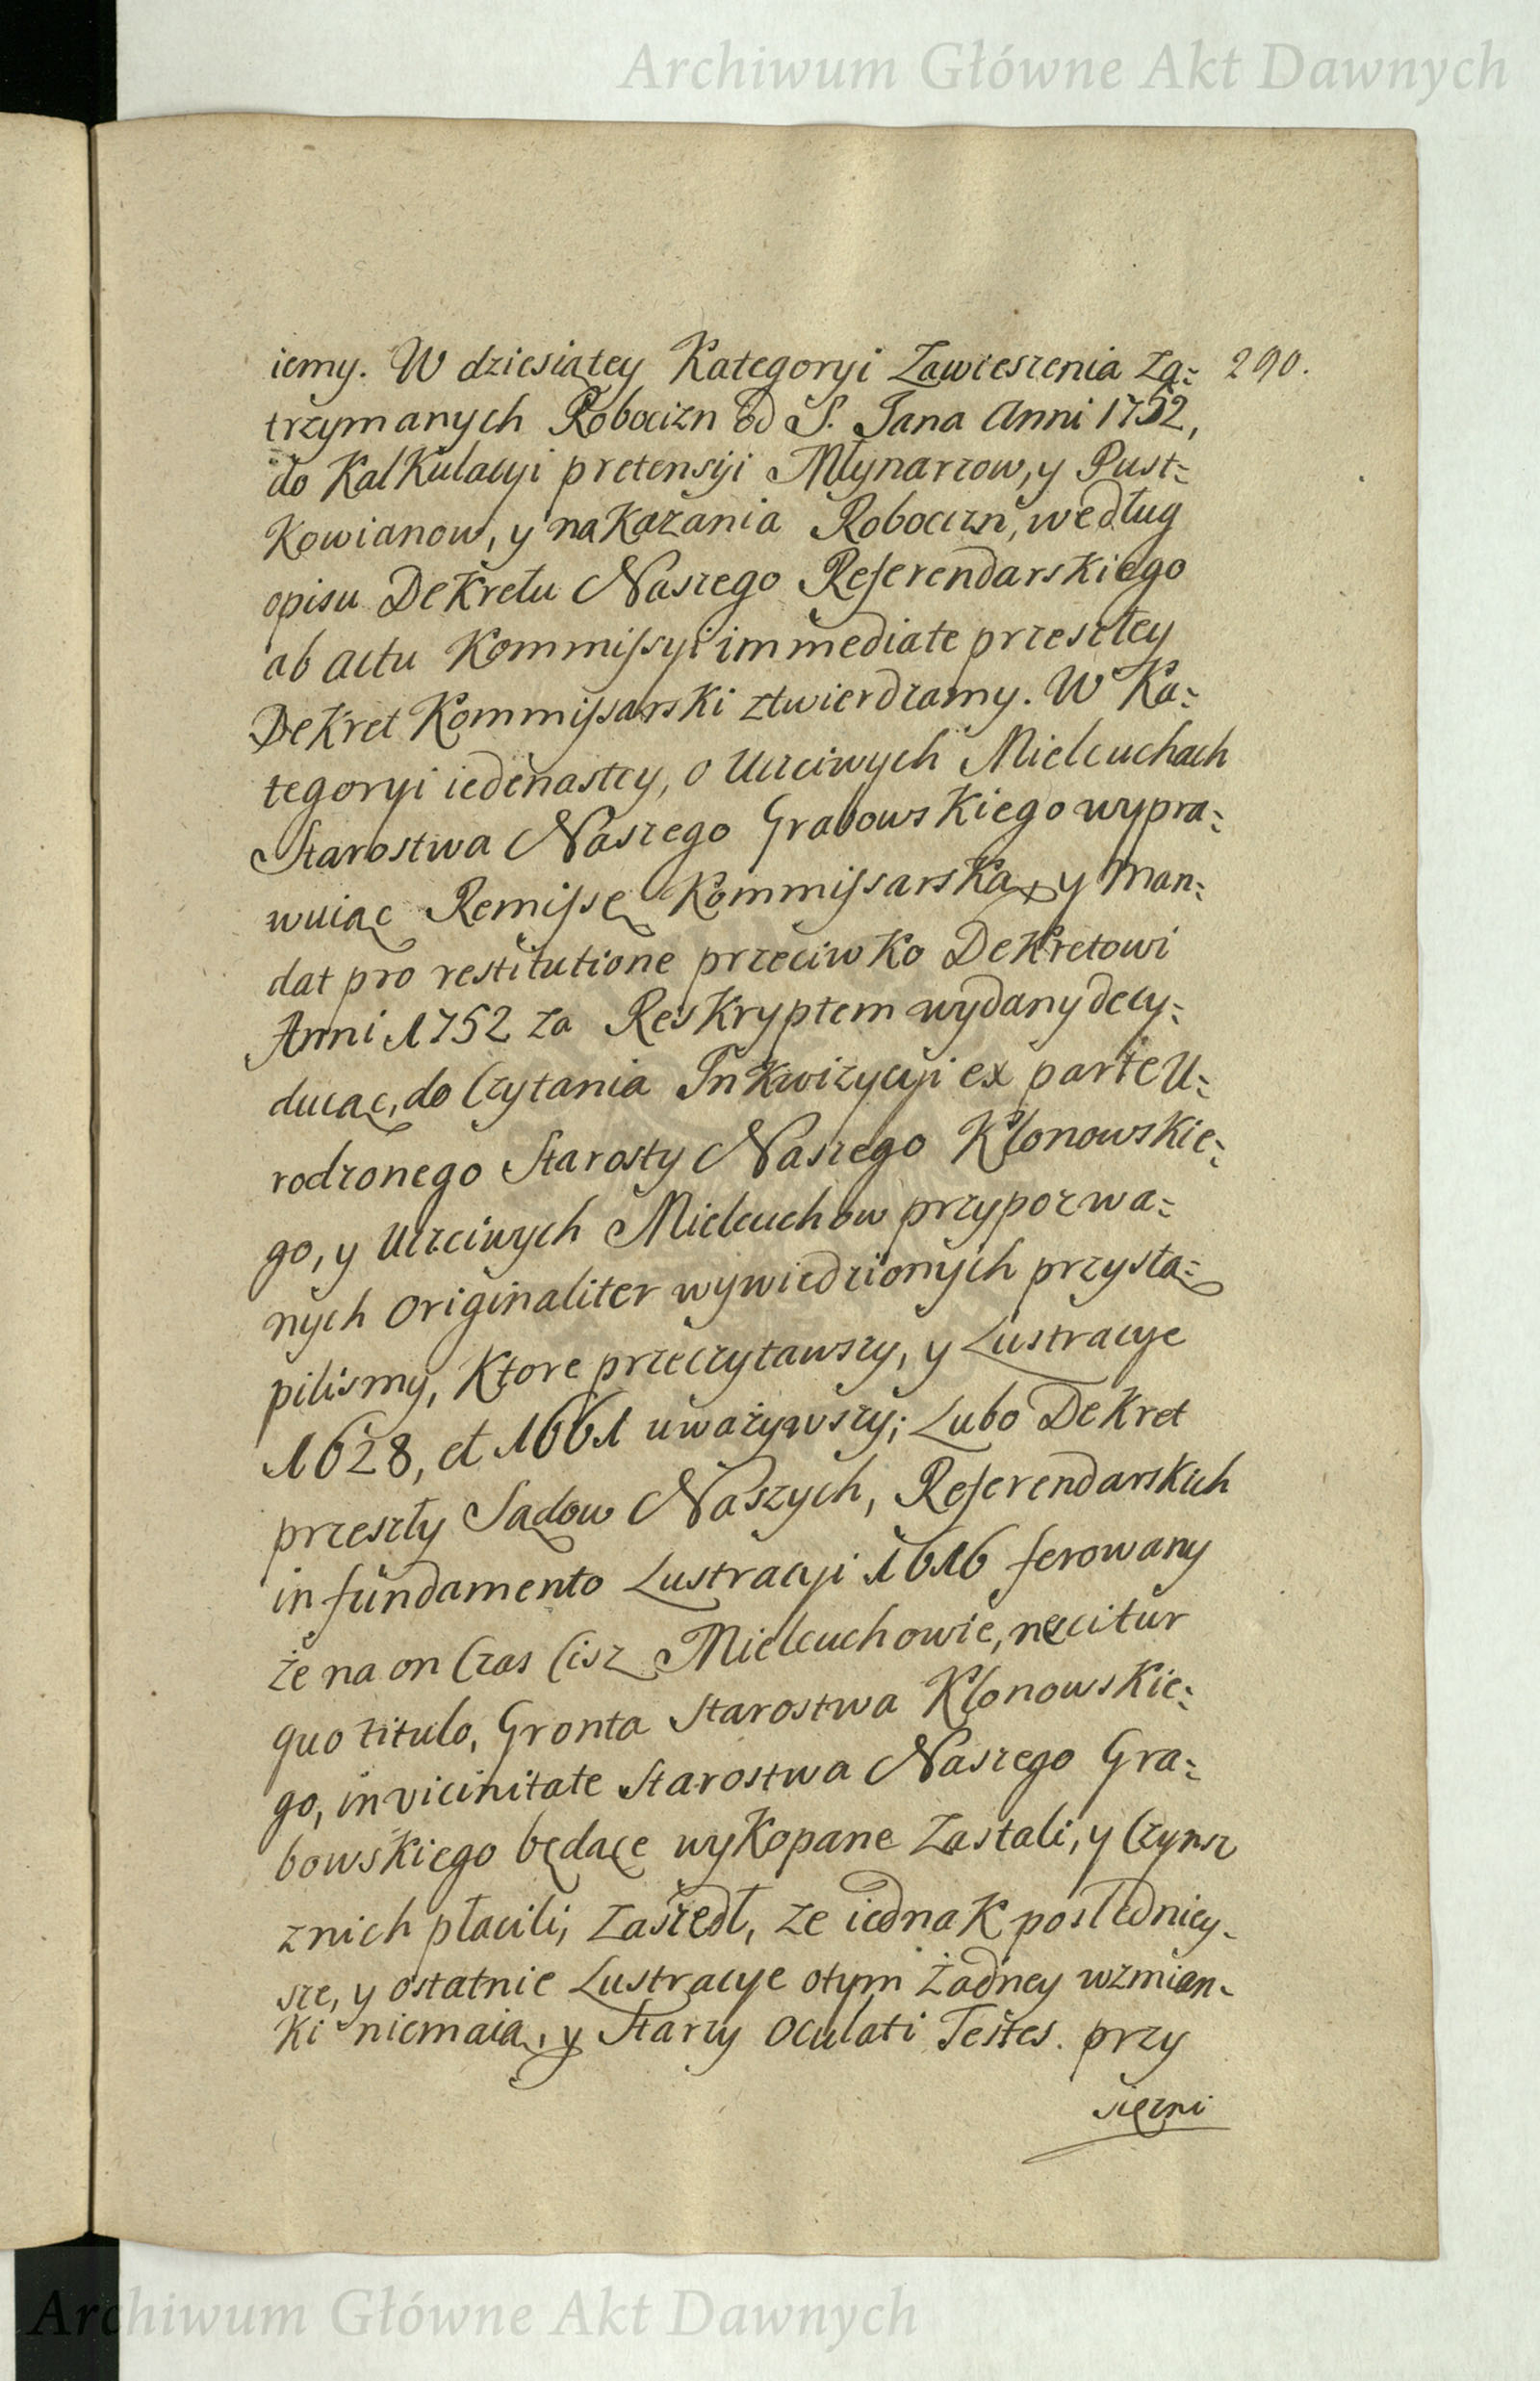 Archiwum Główne Akt Dawnych
iemy. W dziesiątey Kategoryi Zawieszenia Za= 290.
trzymanych Robocizn od S. Jana Anni 1752,
do Kalkulacyi pretensyi Młynarzow, y Pust=
Kowianow, y nakazania Robocizn, według
opisu Dekretu Naszego Referendarskiego
ab actu Kommissyi immediate przeszłey
Dekret Kommissarski ztwierdzamy. W Ka=
tegoryi iedenastey, o Uczciwych Mielcuchach
Starostwa Naszego Grabowskiego wypra=
wuiąc Remissę Kommissarską, y Man=
dat pro restitutione przeciwko Dekretowi
Anni 1752 za Reskryptem wydany decy=
duiąc, do Czytania Inkwizycyi ex parte U=
rodzonego Starosty Naszego Klonowskie=
go, y Uczciwych Mielcuchow przypozwa=
nych Originaliter wywiedzionych przystą=
pilismy, Ktore przeczytawszy, y Lustracye
1628, et 1661 uważywszy; Lubo Dekret
przeszły Sądow Naszych, Referendarskich
in fundamento Lustracyi 1616 ferowany
że na on Czas Cisz Mielcuchowie, nescitur
quo titulo, Gronta Starostwa Klonowskie=
go, in vicinitate Starostwa Naszego Gra=
bowskiego będące wykopane Zastali, y Czynsz
z nich płacili, Zaszedł, ze iednak posledniey=
sze, y ostatnie Lustracye o tym żadney wzmian=
ki niemaią, y Starzy Oculati Testes. przy
sięzni
Archiwum Główne Akt Dawnych